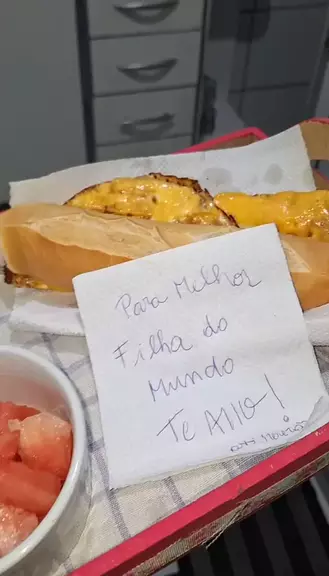 Para Melhor
Filha do
Mundo
Te AMO!